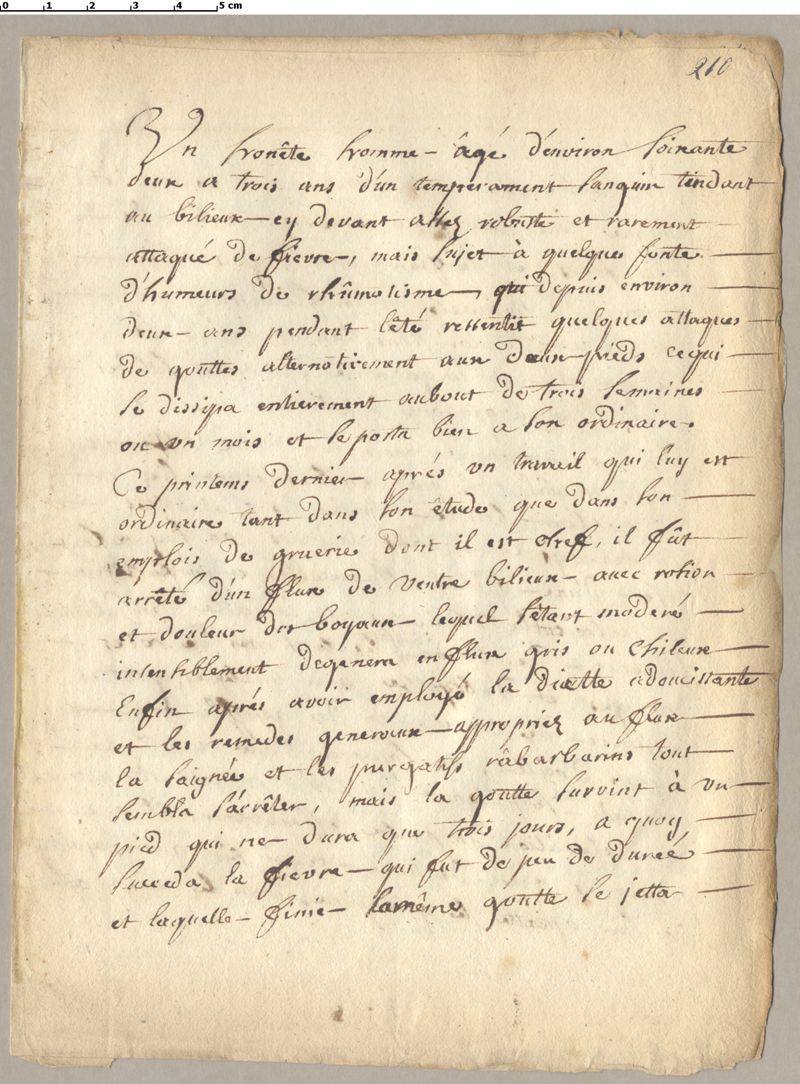 0 1 2 3 4 5 cm
210
Un honête homme âgé d'environ soixante
deux a trois ans d'un temperament sanguin tendant
au bilieux cy devant assez robuste et rarement
attaqué de fievre, mais sujet à quelque fonte
d'humeurs de rhûmatisme, qui depuis environ
deux ans pendant l'êté ressentit quelques attaques
de gouttes alternativement aux deux pieds ce qui
se dissipa entierement au bout de trois semaines
ou un mois et se porta bien a son ordinaire.
Ce printems dernier aprés un travail qui luy est
ordinaire tant dans son êtude que dans son
emplois de gruerie dont il est chef, il fût
arrêté d'un flux de ventre bilieux avec
et douleur des boyaux lequel s'êtant moderé
insensiblement degenera en flux gris ou chileux
Enfin aprés avoir employé la diette adoucissante
et les remedes generaux appropriez au flux
la saignée et les purgatifs râbarbarins tout
sembla s'arrêter, mais la goutte survint à un
pied qui ne dura que trois jours, a quoy
succeda la fievre qui fut de peu de dureé
et laquelle finie la même goutte se jetta